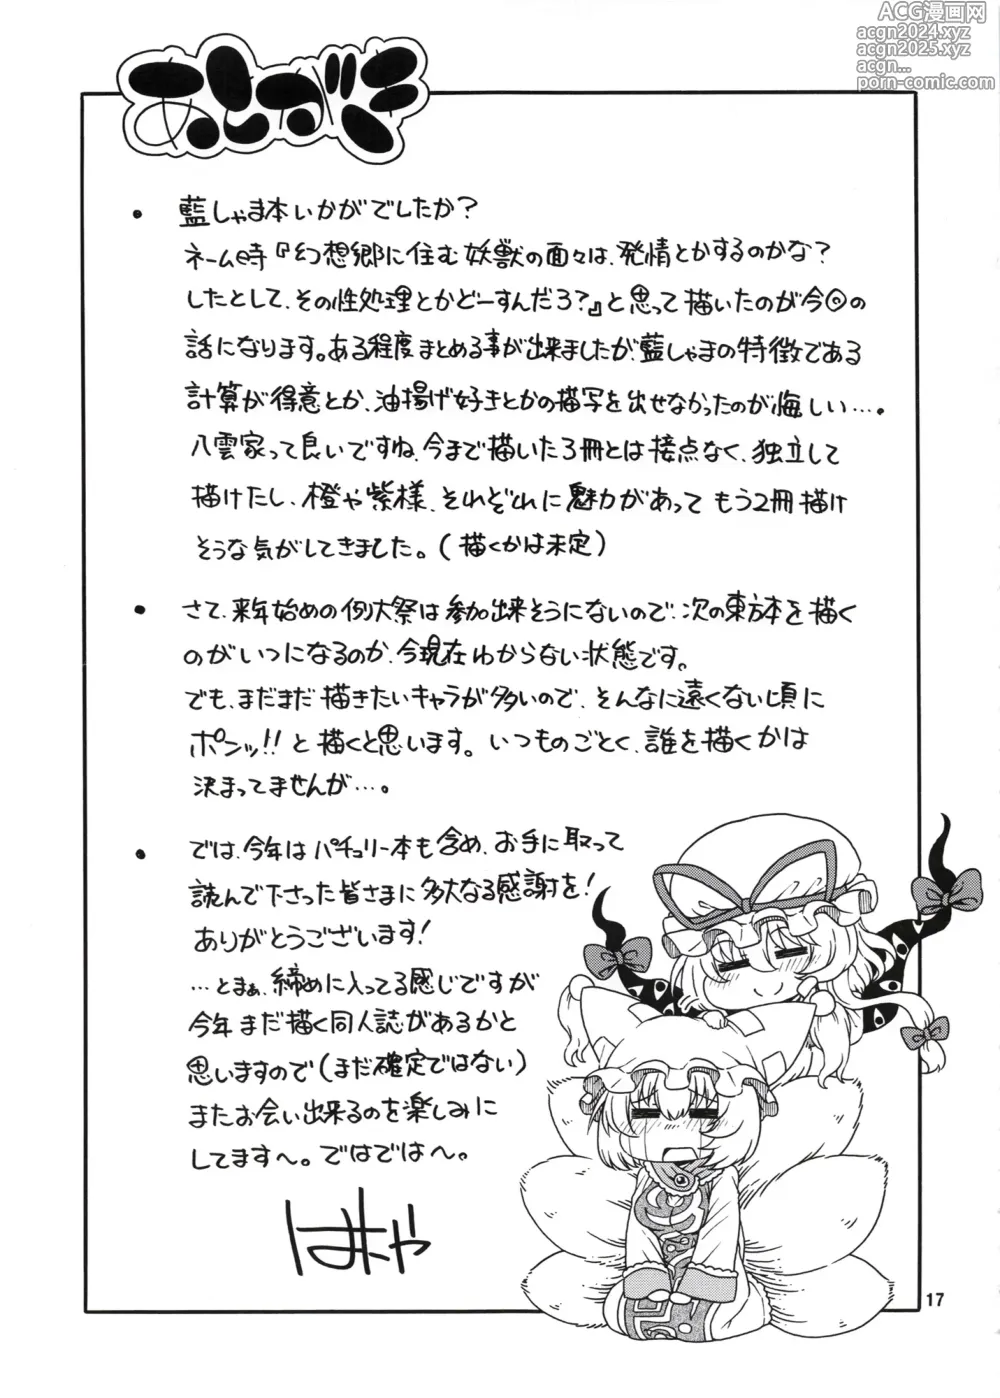 ACG漫画网
acgn2024.xyz
acgn2025.xyz
acgn...
porn-comic.com
あとがき
・藍しゃま本いかがでしたか?
ネーム時『幻想郷に住む妖獣の面々は、発情とかするのかな?
したとして、その性処理とかどーすんだろ?』と思って描いたのが今回の
話になります。ある程度まとめる事が出来ましたが、藍しゃまの特徴である
計算が得意とか、油揚げ好きとかの描写を出せなかったのが悔しい…。
八雲家って良いですね、今まで描いた3冊とは接点なく、独立して
描けたし、橙や紫様、それぞれに魅力があってもう2冊描け
そうな気がしてきました。(描くかは未定)
・さて、来年始めの例大祭は参加出来そうにないので、次の東方本を描く
のがいつになるのか、今現在わからない状態です。
でも、まだまだ描きたいキャラが多いので、そんなに遠くない頃に
ポンッ!!と描くと思います。いつものごとく、誰を描くかは
決まってませんが…。
・では、今年はパチュリー本も含め、お手に取って
読んで下さった皆さまに多大なる感謝を!
ありがとうございます!
…とまぁ、締めに入ってる感じですが
今年まだ描く同人誌があるかと
思いますので(まだ確定ではない)
またお会い出来るのを楽しみに
してます～。ではでは～。
はたや
17